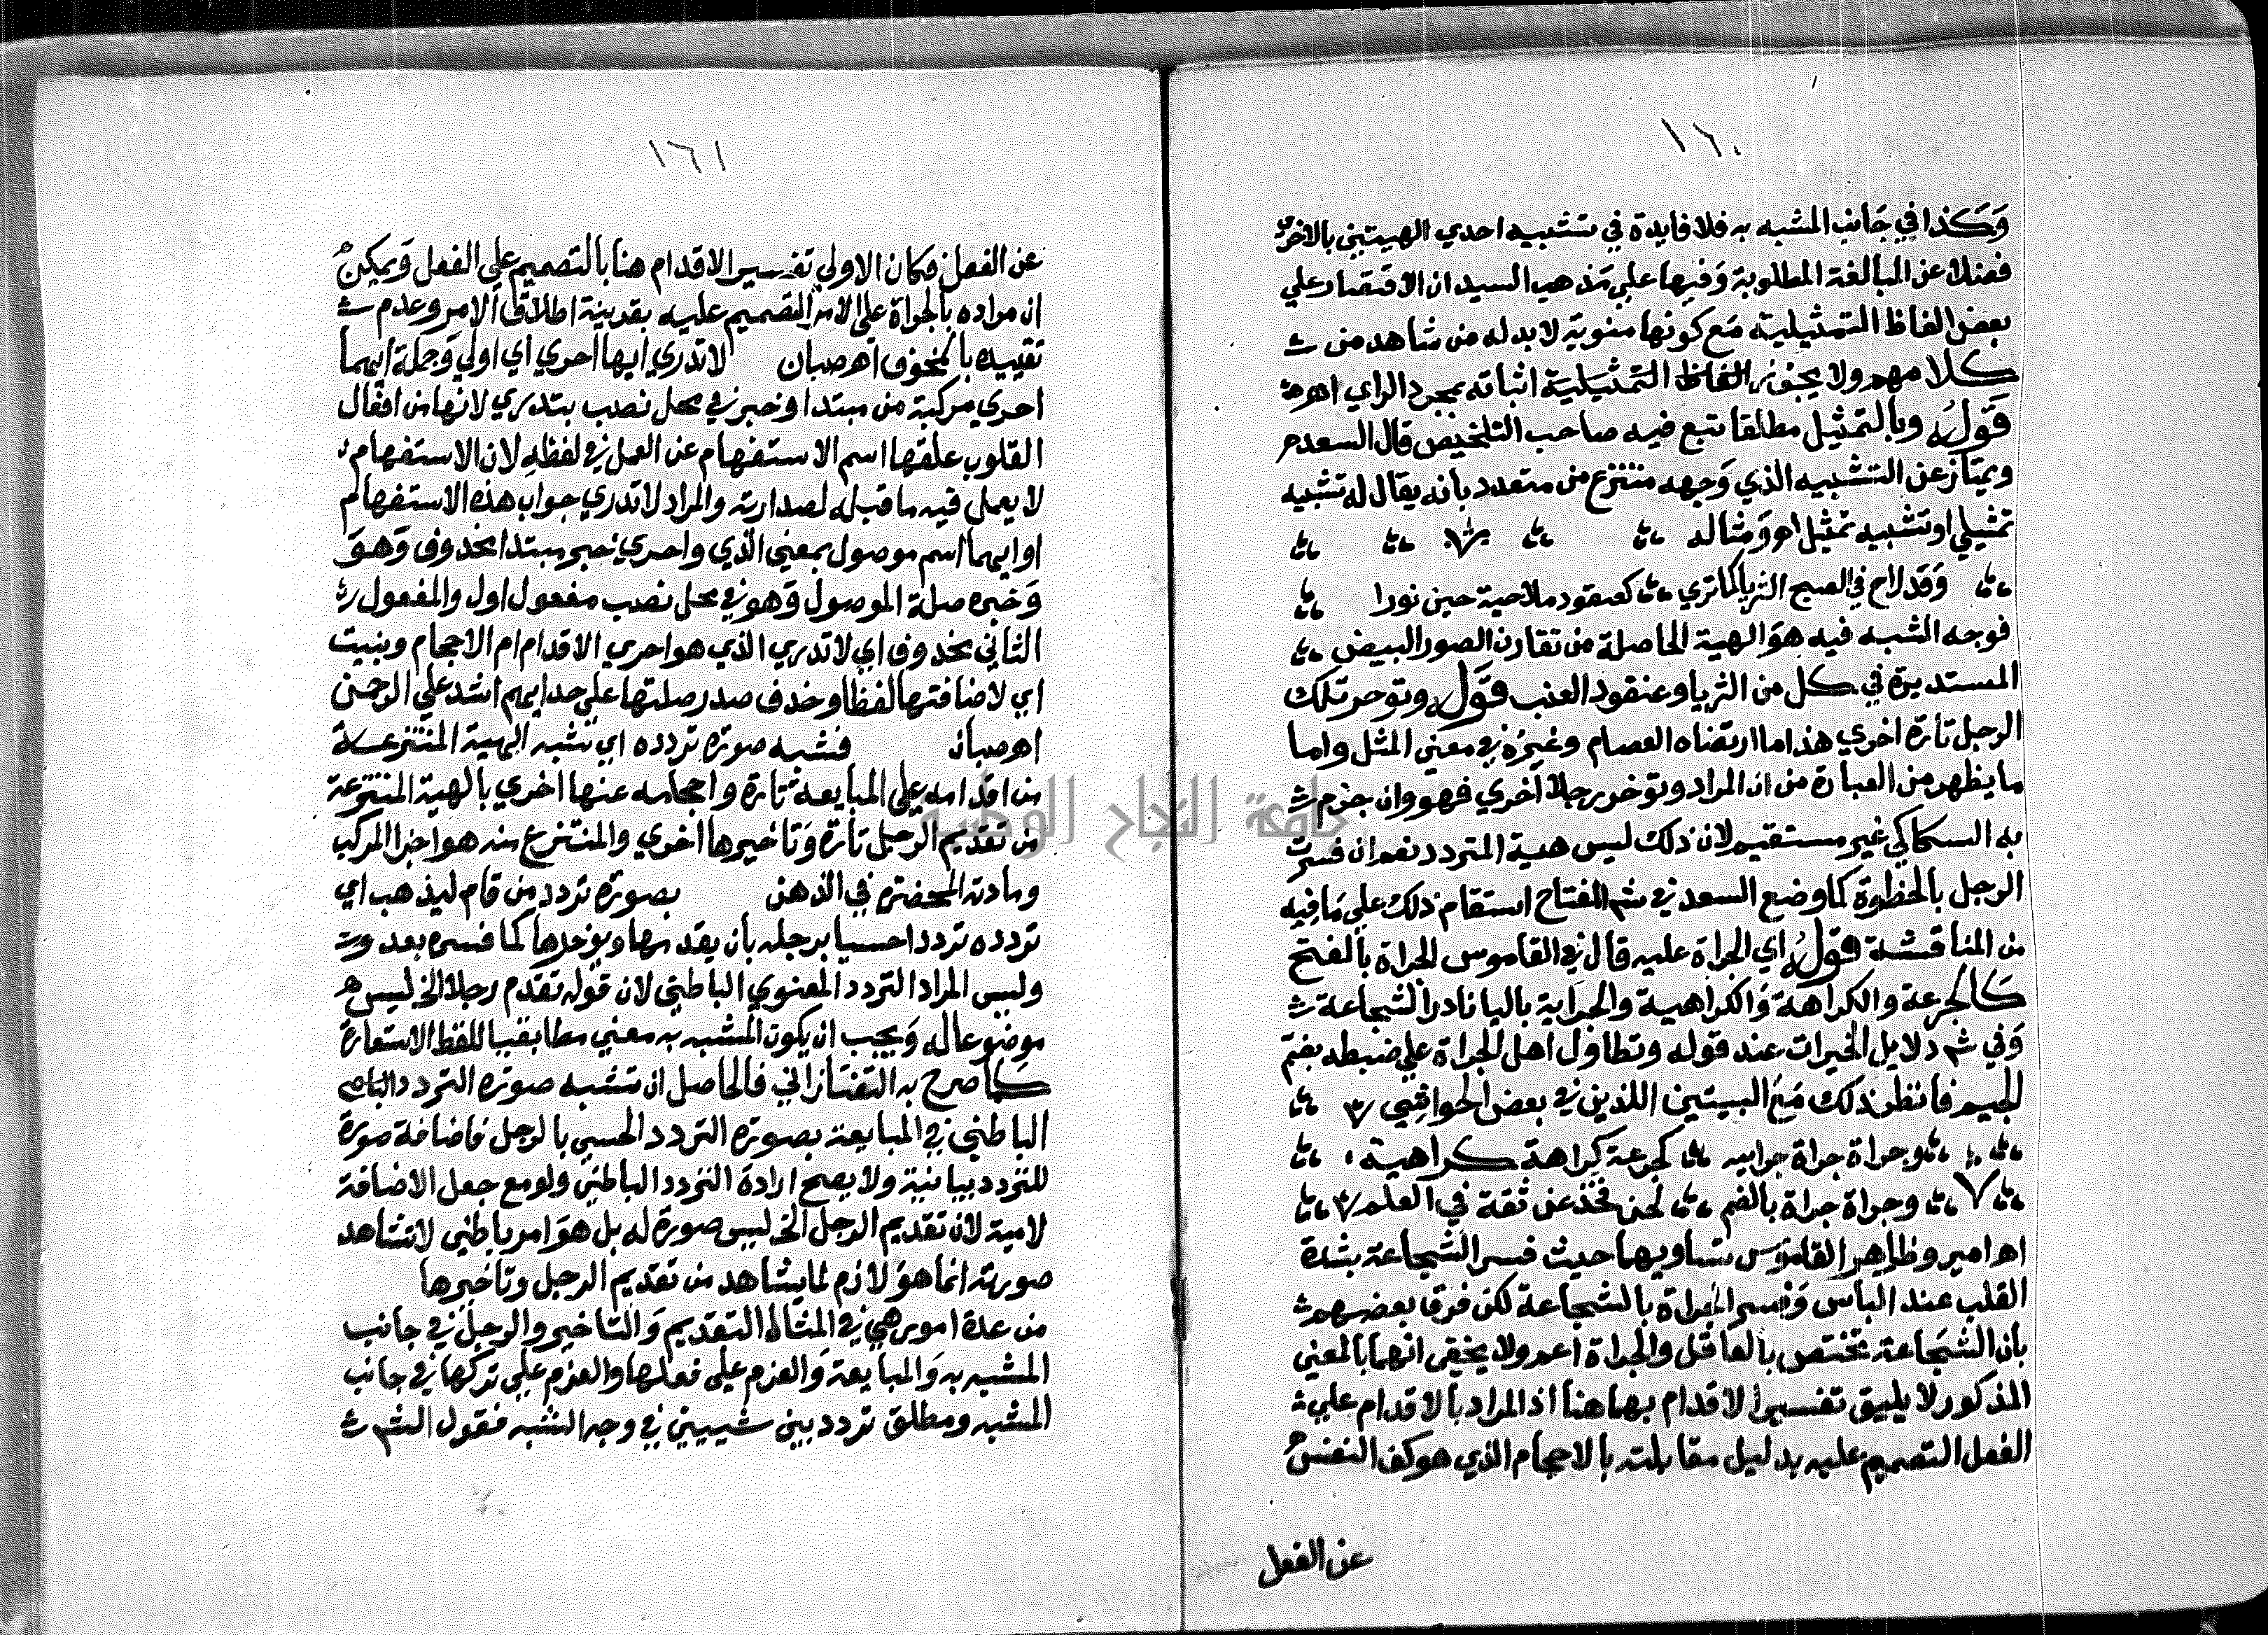 ١٦٠
وَكذا في جَانب المشبه به فلا فايدة في تشبيه احدي الهيتين بالاخري
فضلا عن المبالغة المطلوبة وَفيها علي مَذهب السيد ان الاقتصار علي
بعض الفاظ التمثيلية مَع كونها منوية لابد له من شاهد من
كلامهم ولا يجوز في الفاظ التمثيلية اثباته بمجرد الراي اهـ
قَولُه وبالتمثيل مطلقا تبع فيه صاحب التلخيص قال السعد
ويمتاز عن التشبيه الذي وَجهه منتزع من متعدد بانه يقال له تشبيه
تمثيلي او تشبيه تمثيل اهـ وَمثاله
وَقد لاح في الصبح الثريا كما تري كعنقود ملاحية حين نورا
فوجه الشبه فيه هوَ الهية الحاصلة من تقارن الصور البيض
المستديرة في كل من الثريا وعنقود العنب قوَله وتوخر تلك
الرجل تارة اخري هذا ما ارتضاه العصام وغيره في معني المثل واما
ما يظهر من العبارة من ان المراد وتوخر رجلا اخري فهو وان جزم
به السكاكي غير مستقيم لان ذلك ليس هية المتردد نعم ان فسرت
الرجل بالخطوة كما وضع السعد في شم المفتاح استقام ذلك علي مَا فيه
من المناقشة قولُه اي الجراة عليه قال في القاموس الجراة بالفتح
كالجرعة والكراهة وَالكراهية والجرَاية باليا نادرا الشجاعة
وَفي شم دلايل الخيرات عند قوله وتطاول اهل الجراة علي ضبطه بضم
الجيم فانظر ذلك مَع البيتين اللذين في بعض الحواشي
وجراة جراة جرابيه كجرعة كراهة كراهية
وجراة جراة بالضم لحن فخذ عن ثقة في العلم
اهـ امير وظاهر القاموس تساويهما حيث فسر الشجاعة بشدة
القلب عند البأس وَفسر الجراة بالشجاعة لكن فرق بعضهم
بان الشجَاعة تختص بالعاقل والجراة اعم ولا يخفي انهما بالمعني
المذكور لا يليق تفسير الاقدام بهما هنا اذ المراد بالاقدام علي
الفعل التصميم عليه بدليل مقابلته بالاحجام الذي هو كف النفس
عن الفعل
١٦١
عن الفعل فكان الاولي تفسير الاقدام هنا بالتصميم علي الفعل وَيمكن
ان مراده بالجراة علي الامر التصميم عليه بقرينة اطلاق الامر وعدم
تقييده بالمخوف اهـ صبان لا تدري ايهما احري اي اولي وَجملة ايهما
احري مركبة من مبتدا وخبر في محل نصب بتدري لانها من افعال
القلوب علقها اسم الاستفهام عن العمل في لفظهِ لان الاستفهام
لا يعمل فيه ما قبله لصدارته والمراد لا تدري جواب هذه الاستفهام
او ايهما اسم موصول بمعني الذي واحري خبر مبتدا محذوف وَهوَ
وَخبره صلة الموصول وَهو في محل نصب مفعول اول والمفعول
الثاني محذوف اي لا تدري الذي هو احري الاقدام ام الاحجام وبنيت
اي لاضافتها لفظا وحذف صدر صلتها علي حد ايهم اشد علي الرحمن
اهـ صبان فشبه صورة تردده اي نشبه الهية المنتزعة
من اقدامه علي المبايعة تارة واحجامه عنها اخري بالهية المنتزعة
من تقديم الرجل تارة وَتاخيرها اخري والمنتزع منه هو اجزا المركب
ومادته المحضرة في الذهن بصورة تردد من قام ليذهب اي
تردده ترددا حسيا برجله بان يقدمها ويوخرها كما فسره بعد
وليس المراد التردد المعنوي الباطني لان قوله تقدم رجلا الخ ليس
موضوعا له وَيجب ان يكون المشبه به معني مطابقيا للفظ الاستعارة
كما صرح به التفتازاني فالحاصل ان تشبه صورة التردد
الباطني في المبايعة بصورة التردد الحسي بالرجل فاضافة صورة
للتردد بيانية ولا يصح ارادة التردد الباطني ولو مع جعل الاضافة
لامية لان تقديم الرجل الخ ليس صورة له بل هوَ امر باطني لا تشاهد
صورته انما هوَ لازم لما يشاهد من تقديم الرجل وتاخيرها
من عدة امور هي في المثال التقديم وَالتاخير والرجل في جانب
المشبه به وَالمبايعة وَالعزم علي فعلها والعزم علي تركها في جانب
المشبه ومطلق تردد بين شييين في وجه الشبه فقول الشم
جامعة النجاح الوطنية